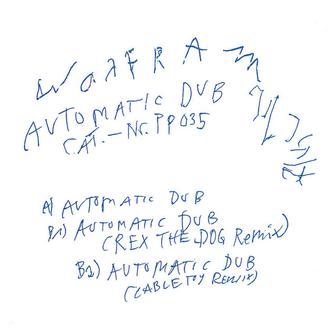 AUTOMATIC DUB
CAT.-Nr. PP035
A) AUTOMATIC DUB
B1) AUTOMATIC DUB
(REX THE DOG Remix)
B2) AUTOMATIC DUB
(CABLE TOY REMIX)